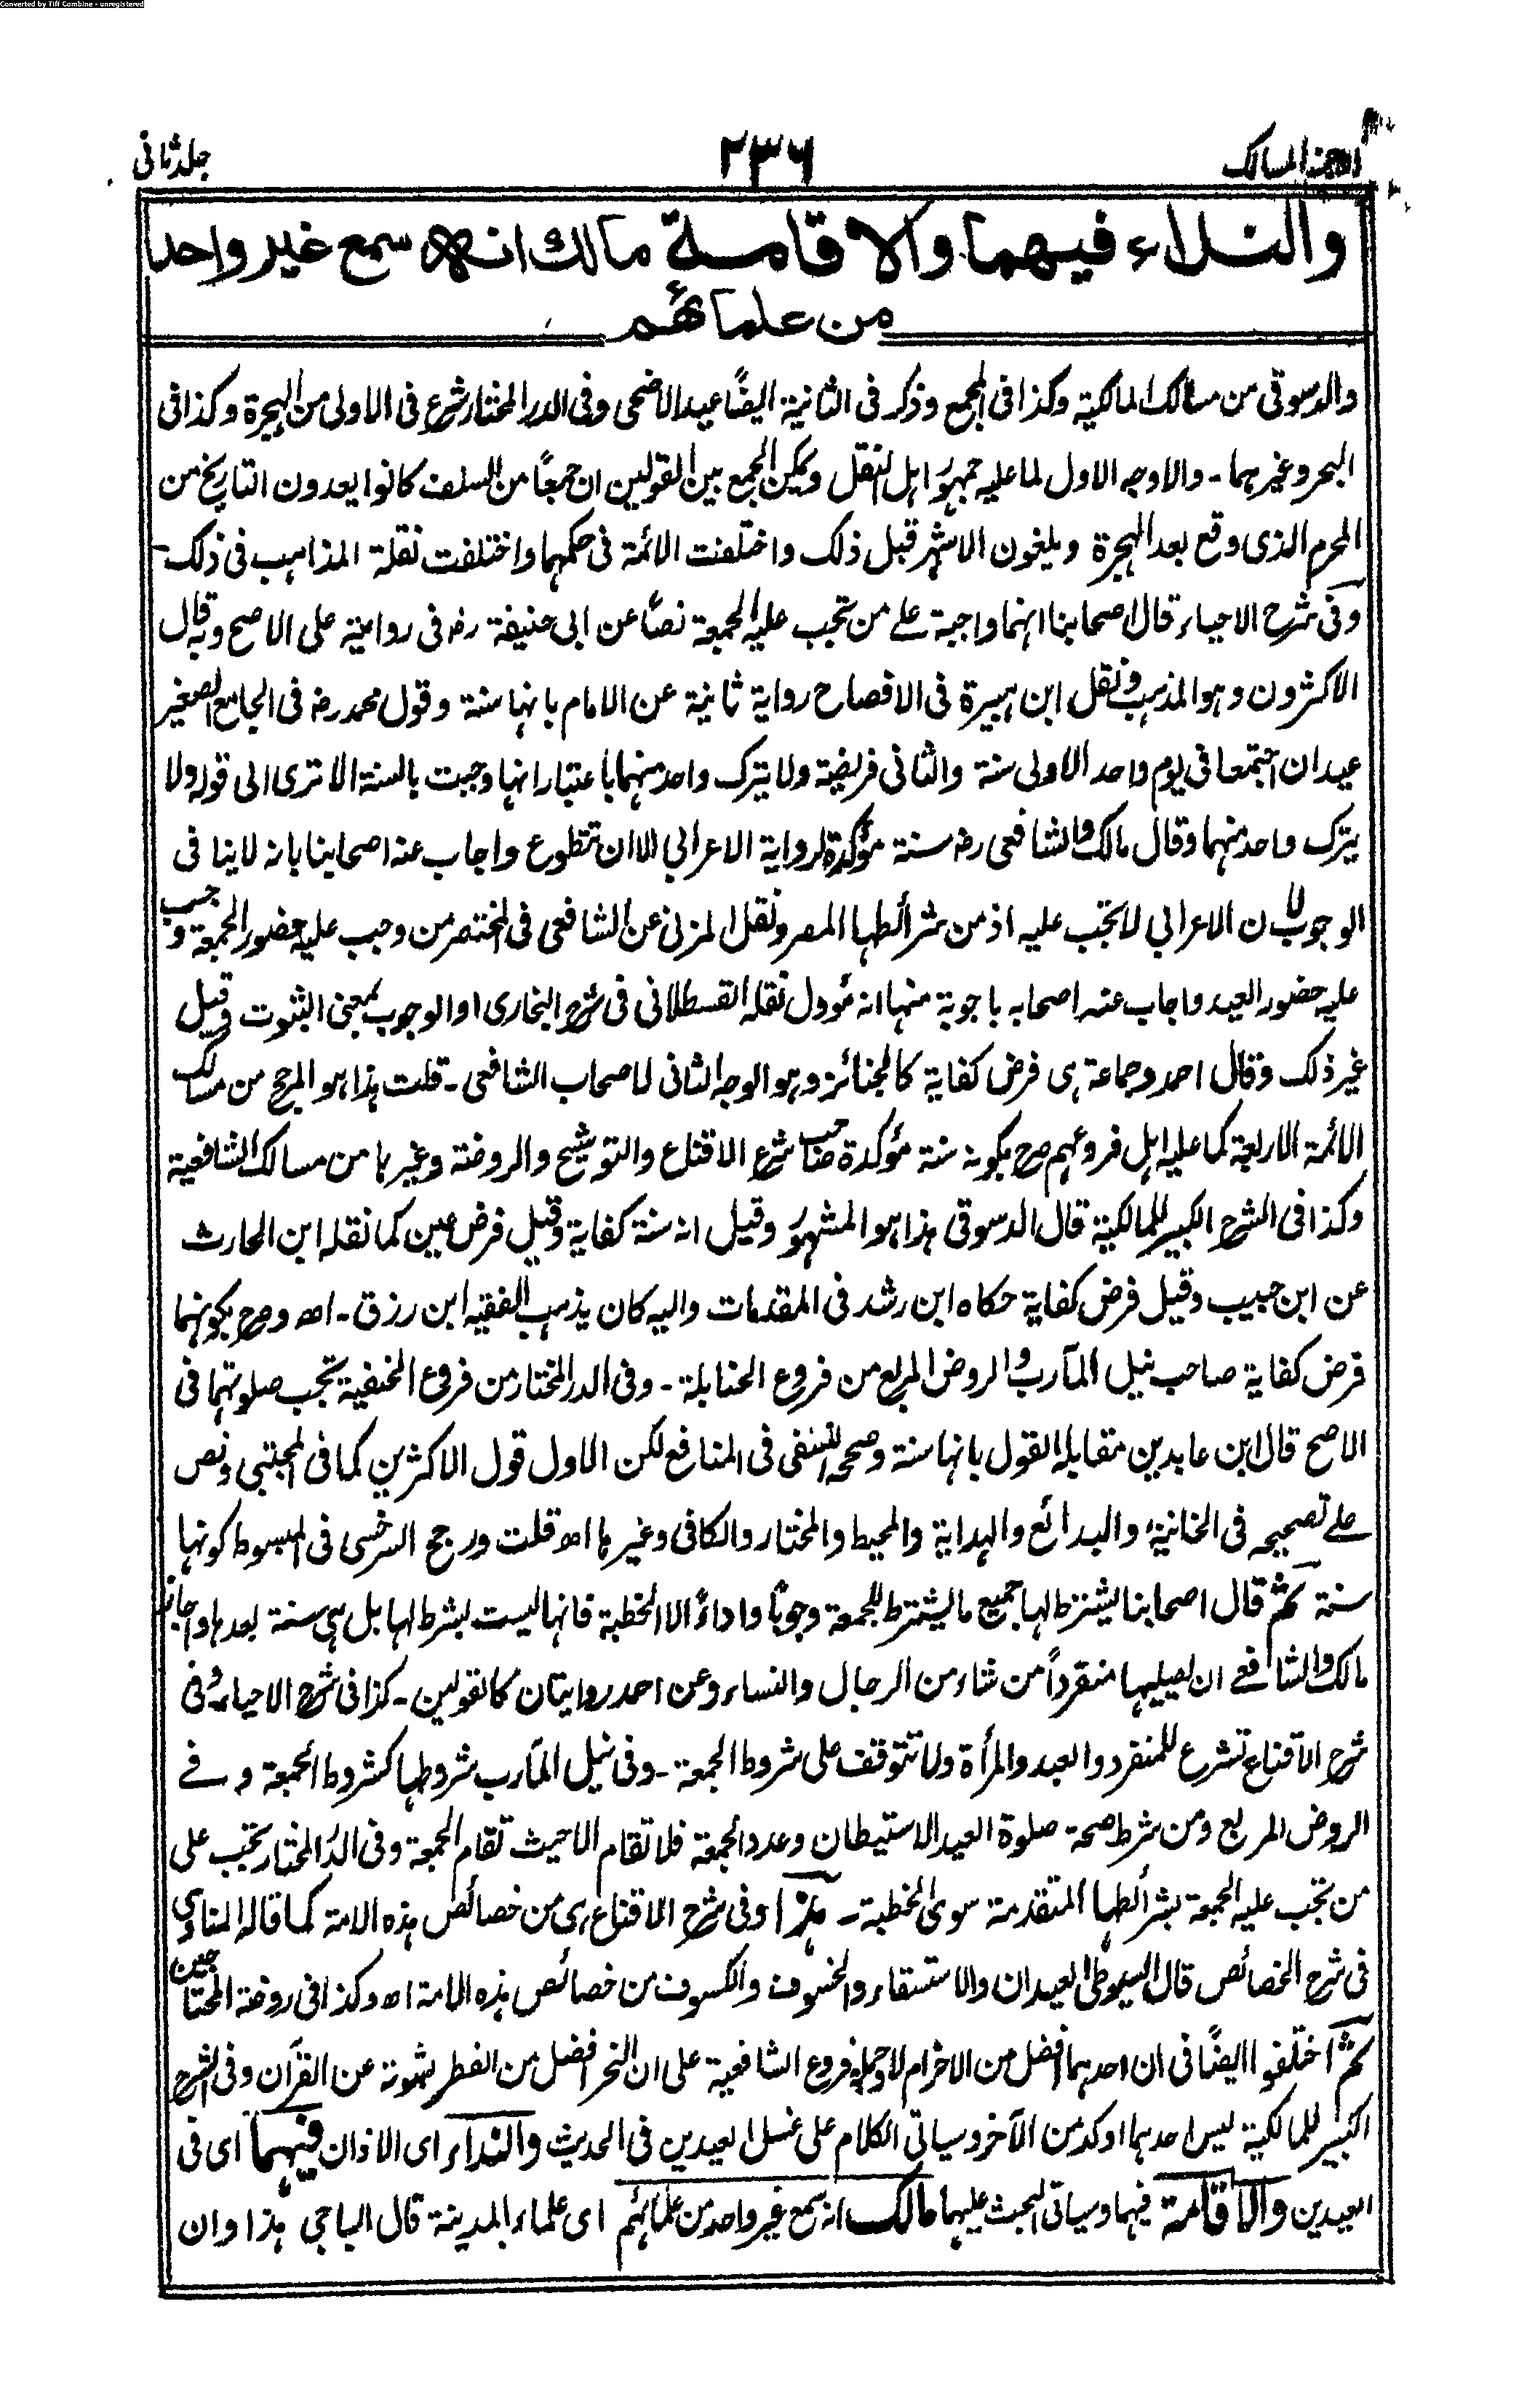 Converted by Tiff Combine - unregistered
اوجز المسالك
٢٣٦
جلد ثانى
والنداء فيهما والاقامة مالك انه سمع غير واحد
من علمائهم
والدسوقى من مسالك المالكية وكذا فى المجمع وذكر فى الثانية ايضًا عيد الاضحى وفى الدر المختار شرع فى الاولى من الهجرة وكذا فى
البحر وغيرهما - والاوجه الاول لما عليه جمهور اهل النقل ويمكن الجمع بين القولين ان جمعًا من السلف كانوا يعدون التاريخ من
المحرم الذى وقع بعد الهجرة ويلغون الاشهر قبل ذلك واختلفت الائمة فى حكمهما واختلفت نقلة المذاهب فى ذلك
وفى شرح الاحياء قال اصحابنا انهما واجبة على من تجب عليه الجمعة نصًا عن ابى حنيفة رض فى رواية على الاصح وبه قال
الاكثرون وهو المذهب ونقل ابن هبيرة فى الافصاح رواية ثانية عن الامام بانها سنة وقول محمد رض فى الجامع الصغير
عيدان اجتمعا فى يوم واحد الاولى سنة والثانى فريضة ولا يترك واحد منهما باعتبار انها وجبت بالسنة الا ترى الى قوله ولا
يترك واحد منهما وقال مالك والشافعى رض سنة مؤكدة لرواية الاعرابي الا ان تتطوع واجاب عنه اصحابنا بانه لا ينافى
الوجوب لان الاعرابي لا تجب عليه اذ من شرائطها المصر ونقل المزنى عن الشافعى فى المختصر من وجب عليه حضور الجمعة وجب
عليه حضور العيد واجاب عنه اصحابه باجوبة منها انه مؤول نقله القسطلانى فى شرح البخارى او الوجوب بمعنى الثبوت وقيل
غير ذلك وقال احمد وجماعة هى فرض كفاية كالجنائز وهو الوجه الثانى لاصحاب الشافعى - قلت هذا هو المرجح من مسالك
الائمة الاربعة كما عليه اهل فروعهم صرح بكونه سنة مؤكدة صاحب شرح الاقناع والتوشيح والروضة وغيرها من مسالك الشافعية
وكذا فى الشرح الكبير للمالكية قال الدسوقى هذا هو المشهور وقيل انه سنة كفاية وقيل فرض عين كما نقله ابن الحارث
عن ابن حبيب وقيل فرض كفاية حكاه ابن رشد فى المقدمات واليه كان يذهب الفقيه ابن رزق - اھ وصرح بكونهما
فرض كفاية صاحب نيل المآرب والروض المربع من فروع الحنابلة - وفى الدر المختار من فروع الحنفية تجب صلوتهما فى
الاصح قال ابن عابدين مقابله القول بانها سنة وصححه النسفى فى المنافع لكن الاول قول الاكثرين كما فى المجتبى ونص
على تصحيحه فى الخانية والبدائع والهداية والمحيط والمختار والكافى وغيرها اھ قلت ورجح السرخسى فى المبسوط كونها
سنة ثم قال اصحابنا يشترط لها جميع ما يشترط للجمعة وجوبًا واداءً الا الخطبة فانها ليست بشرط لها بل هى سنة بعدها واجاز
مالك والشافعے ان يصليها منفردًا من شاء من الرجال والنساء وعن احمد روايتان كالقولين - كذا فى شرح الاحياء وفى
شرح الاقناع تشرع للمنفرد والعبد والمرأة ولا تتوقف على شروط الجمعة - وفى نيل المآرب شروطها كشروط الجمعة وفے
الروض المربع ومن شرط صحة صلوة العيد الاستيطان وعدد الجمعة فلا تقام الا حيث تقام الجمعة وفى الدر المختار تجب على
من تجب عليه الجمعة بشرائطها المتقدمة سوى الخطبة - هذا وفى شرح الاقناع هى من خصائص هذه الامة كما قاله المناوي
فى شرح الخصائص قال السيوطى العيدان والاستسقاء والخسوف والكسوف من خصائص هذه الامة اھ وكذا فى روضة المحتاجين
ثم اختلفوا ايضًا فى ان احدهما افضل من الاخر ام لا وجملة فروع الشافعية على ان النحر افضل من الفطر لثبوته عن القرآن وفى الشرح
الكبير للمالكية ليس احدهما اوكد من الآخر وسياتى الكلام على غسل العيدين فى الحديث والنداء اى الاذان فيهما اى فى
العيدين والاقامة فيهما وسياتى البحث عليهما مالك انه سمع غير واحد من علمائهم اى علماء المدينة قال الباجى هذا وان